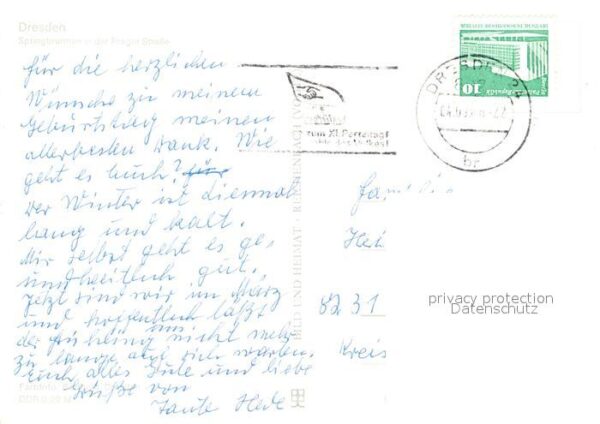 Dresden
Springbrunnen in der Prager Straße
für die herzlichen
Wünsche zu meinem
Geburtstag meinen
allerbesten Dank. Wie
geht es Euch? für
Der Winter ist diesmal
lang und kalt.
Mir selbst geht es ge-
sundheitlich gut.
Jetzt sind wir im März
und hoffentlich läßt
der Frühling uns nicht mehr
zu lange auf sich warten.
Euch alles Gute und liebe
Grüße von
Tante Hede
BILD UND HEIMAT · REICHENBACH (VOGTL)
zum XI. Parteitag
DRESDEN
br
10
Familie
Hei
8231
Kreis
privacy protection
Datenschutz
DDR 0,20 M